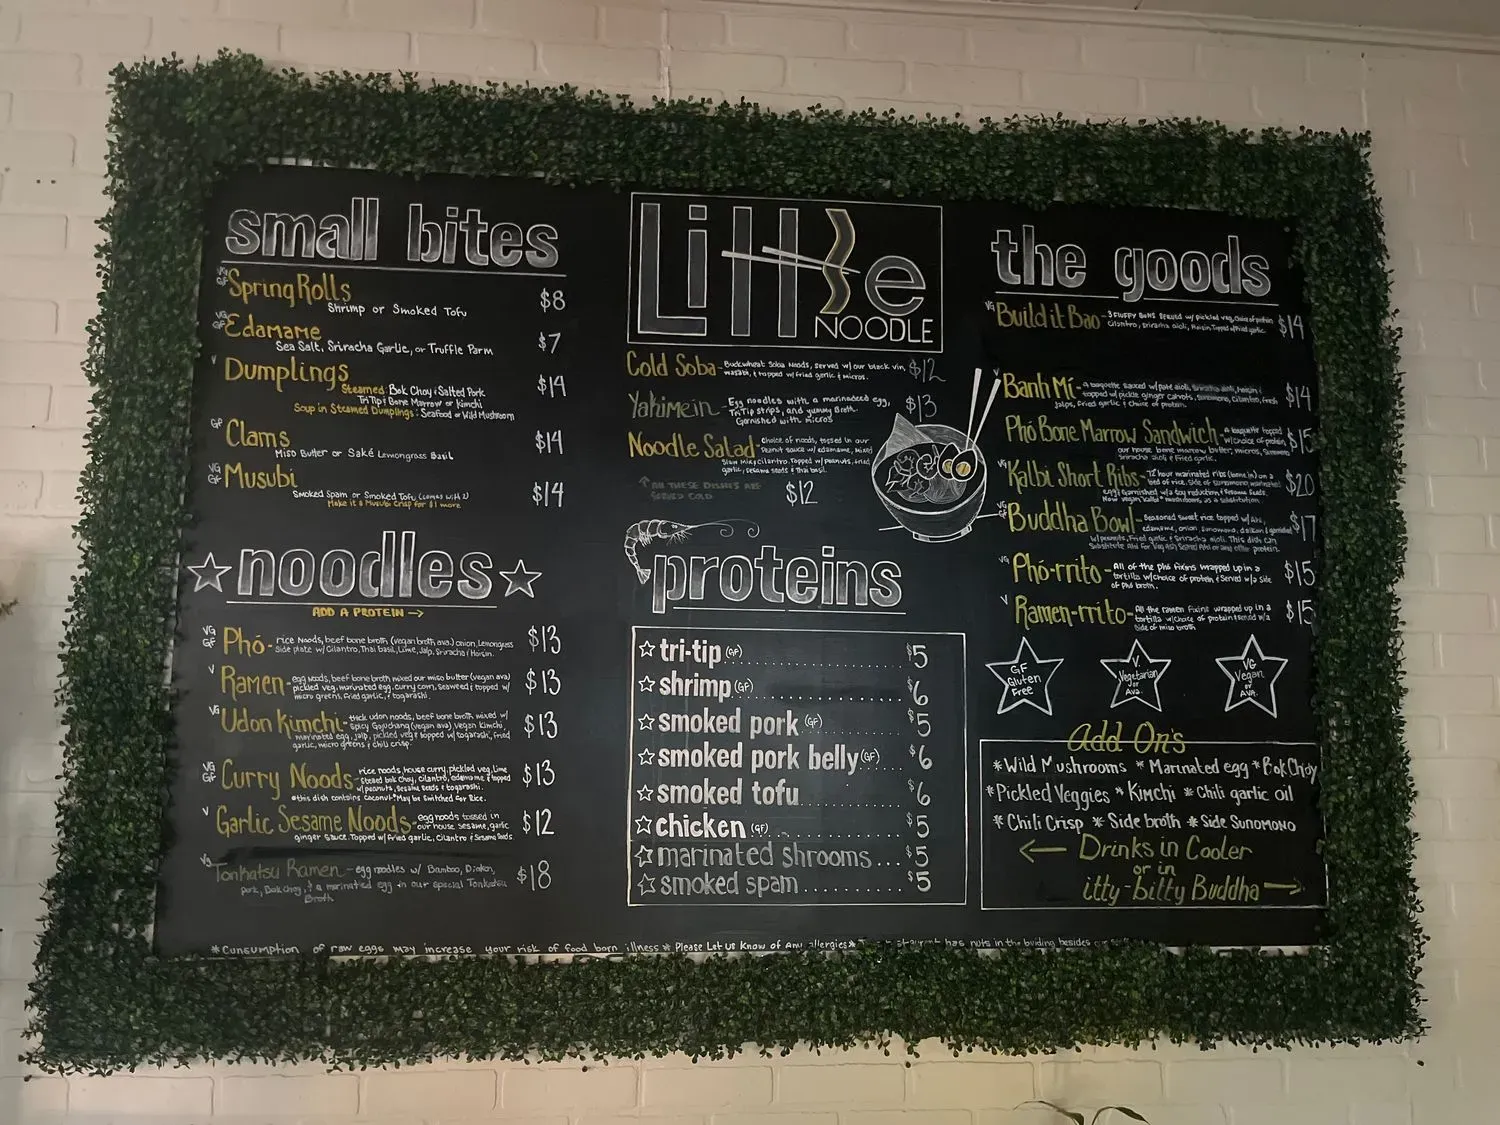 small bites
VG GF Spring Rolls $8
Shrimp or Smoked Tofu
VG GF Edamame $7
Sea Salt, Sriracha Garlic, or Truffle Parm
V Dumplings $14
Steamed: Bok Choy & Salted Pork
Tri Tip & Bone Marrow or Kimchi
Soup in Steamed Dumplings: Seafood or Wild Mushroom
GF Clams $14
Miso Butter or Saké Lemongrass Basil
VG GF Musubi $14
Smoked Spam or Smoked Tofu (comes with 2)
Make it a Musubi Crisp for $1 more
noodles
ADD A PROTEIN →
VG GF Phó - rice noods, beef bone broth (vegan broth ava) onion, Lemongrass $13
side plate w/ Cilantro, Thai basil, Lime, Jalp, Sriracha & Hoisin.
V Ramen - egg noods, beef bone broth mixed our miso butter (vegan ava) $13
pickled veg, marinated egg, curry corn, Seaweed & topped w/
micro greens, Fried garlic, & togarashi.
VG Udon Kimchi - thick udon noods, beef bone broth mixed w/ $13
spicy Gojuchang (vegan ava) Vegan Kimchi,
marinated egg, jalp, pickled veg & topped w/ togarashi, fried
garlic, micro greens & chili crisp.
VG GF Curry Noods - rice noods, house curry, pickled veg, Lime $13
steamed bok choy, cilantro, edamame & topped
w/ peanuts, sesame seeds & togarashi.
*this dish contains coconut *May be Switched for Rice.
V Garlic Sesame Noods - egg noods tossed in $12
our house sesame, garlic
ginger sauce. Topped w/ Fried garlic, Cilantro & Sesame Seeds.
Tonkatsu Ramen - egg noodles w/ Bamboo, Dikon, $18
pork, Bok choy, & a marinated egg in our special Tonkatsu
Broth
Little
NOODLE
Cold Soba - Buckwheat Soba Noods, served w/ our black vin, $12
wasabi, & topped w/ fried garlic & micros.
Yakimein - Egg noodles with a marinadeed egg, $13
Tri Tip strips, and yummy Broth.
Garnished with micros
Noodle Salad - choice of noods, tossed in our
Peanut sauce w/ edamame, mixed
Slaw mix, cilantro. Topped w/ peanuts, fried
garlic, sesame seeds & Thai basil.
↑ ALL THESE DISHES ARE $12
SERVED COLD
proteins
☆ tri-tip (GF) $5
☆ shrimp (GF) $6
☆ smoked pork (GF) $5
☆ smoked pork belly (GF) $6
☆ smoked tofu $6
☆ chicken (GF) $5
☆ marinated shrooms $5
☆ smoked spam $5
the goods
VG Build it Bao - 3 Fluffy Buns served w/ pickled veg, choice of protein $14
cilantro, sriracha aioli, Hoisin. Topped w/ fried garlic.
V Banh Mi - a baguette sauced w/ pate aioli, sriracha aioli, hoisin & $14
topped w/ pickle ginger carrots, sunomono, cilantro, fresh
jalps, Fried garlic & choice of protein.
Phó Bone Marrow Sandwich - a baguette topped $15
w/ choice of protein,
our house bone marrow butter, micros, Sunomono
Sriracha aioli & Fried garlic.
VG Kalbi Short Ribs - 72 hour marinated ribs (bone in) on a $20
bed of rice, side of sunomono marinated
egg & garnished w/ a soy reduction & Sesame Seeds.
Now vegan "kalbi" mushrooms as a substitution
VG GF Buddha Bowl - Seasoned sweet rice topped w/ Ahi, $17
edamame, onion, sunomono, daikon & garnished
w/ peanuts, Fried garlic & Sriracha aioli. This dish can
Substitute Ahi For Veg Ash Seared Ahi or any other protein.
VG Phó-rrito - All of the pho fixins wrapped up in a $15
tortilla w/ choice of protein & Served w/ a side
of pho broth.
V Ramen-rrito - All the ramen fixins wrapped up in a $15
tortilla w/ choice of protein & served w/ a
side of miso broth
GF Gluten Free
V. Vegetarian or Ava.
VG Vegan or AVA.
Add On's
*Wild Mushrooms *Marinated egg *Bok Choy
*Pickled Veggies *Kimchi *Chili garlic oil
*Chili Crisp *Side broth *Side Sunomono
← Drinks in Cooler
or in
itty-bitty Buddha →
*Cunsumption of raw eggs may increase your risk of food born illness * Please Let Us Know of Any allergies* has nuts in the buiding besides